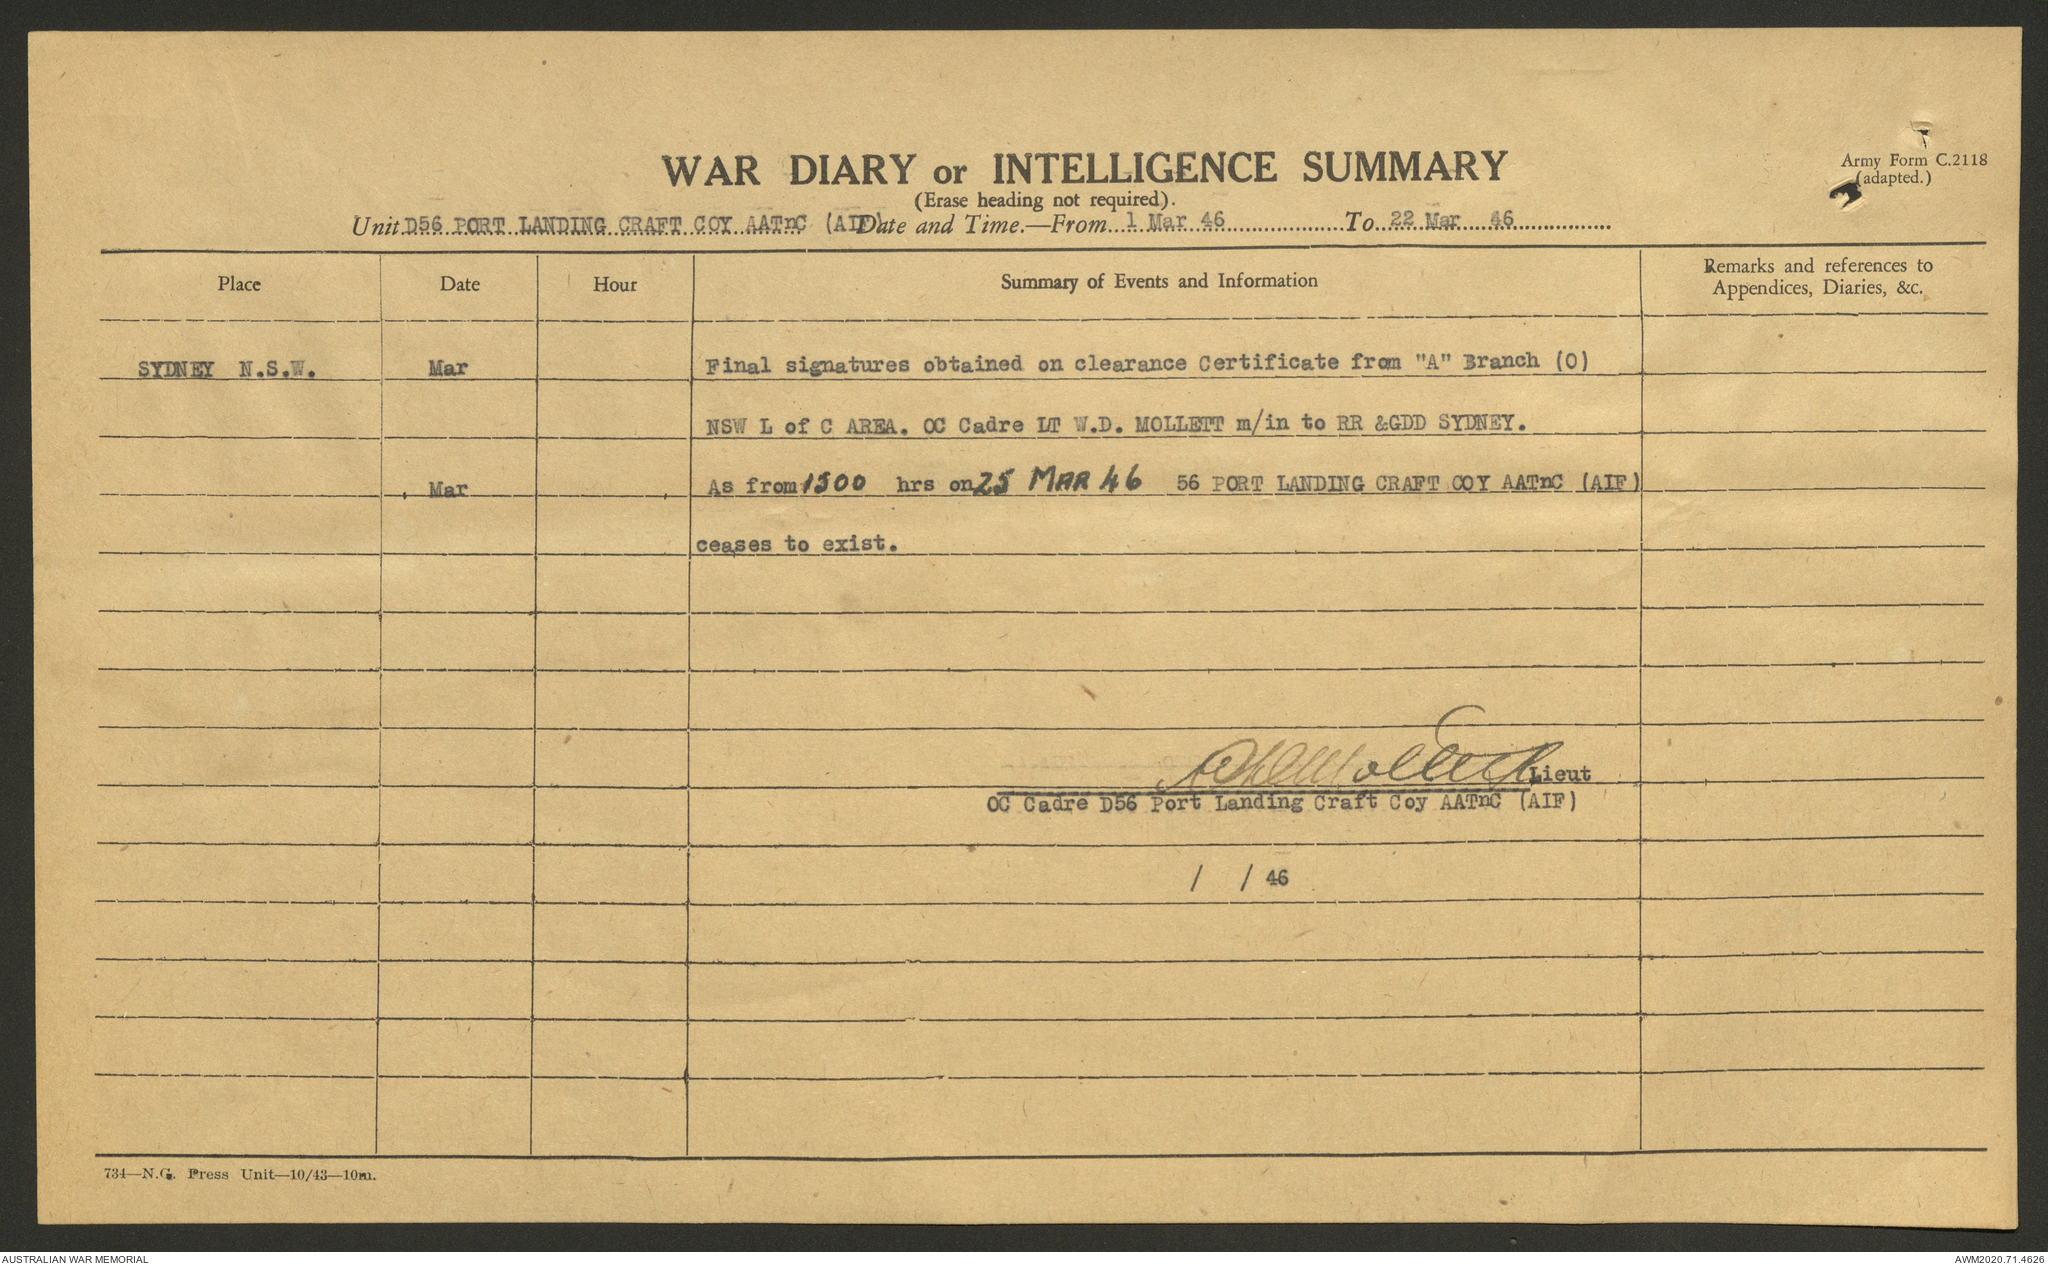 WAR DIARY or INTELLIGENCE SUMMARY
(Erase heading not required).
Army Form C.2118
(adapted.)
Unit D56 PORT LANDING CRAFT COY AATnC (AIF) Date and Time.—From 1 Mar 46 To 22 Mar 46
Place Date Hour Summary of Events and Information Remarks and references to
Appendices, Diaries, &c.
SYDNEY N.S.W. Mar Final signatures obtained on clearance Certificate from "A" Branch (O)
NSW L of C AREA. OC Cadre LT W.D. MOLLETT m/in to RR &GDD SYDNEY.
Mar As from 1500 hrs on 25 MAR 46 56 PORT LANDING CRAFT COY AATnC (AIF)
ceases to exist.
Lieut
OC Cadre D56 Port Landing Craft Coy AATnC (AIF)
/ / 46
734—N.G. Press Unit—10/43—10m.
AUSTRALIAN WAR MEMORIAL
AWM2020.71.4626